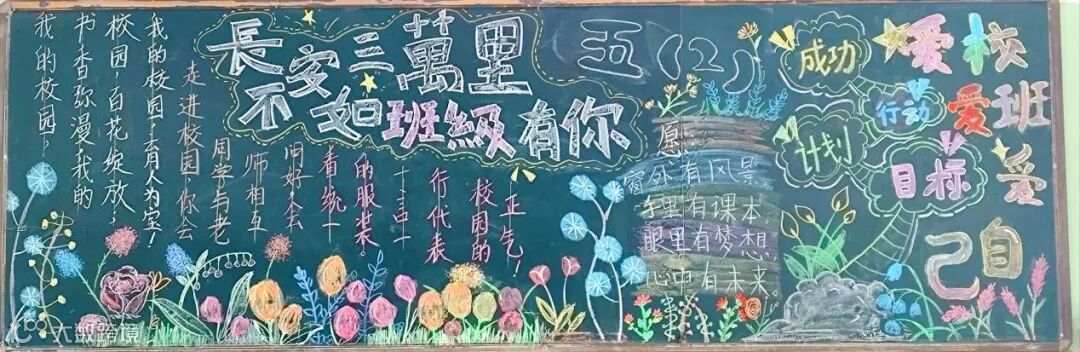 長安三萬里
不如班級有你
五（2）
我的校园，
书香弥漫我的
校园，百花绽放，
我的校园，育人为宝！
走进校园你会
用学与老
师相互
用好人会
看统一
的服装
行代表
校园的
一正气！
愿
窗外有风景，
手里有课本，
眼里有梦想，
心中有未来
成功
行动
计划
目标
爱校
爱班
爱
自己
大数跨境